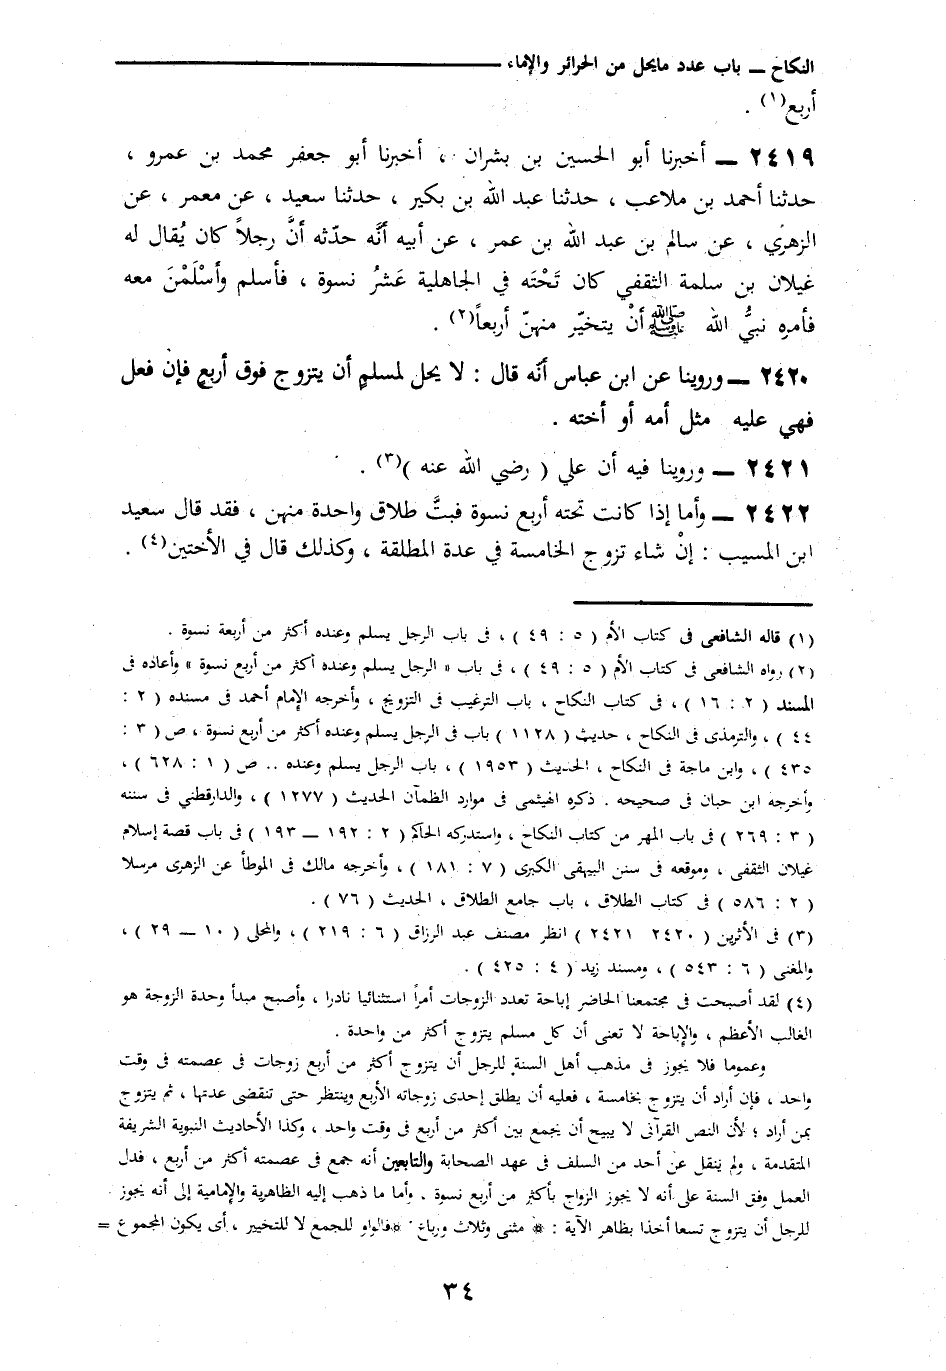 النكاح ــ باب عدد مايحل من الحرائر والإماء
أربع(١) .
٢٤١٩ ــ أخبرنا أبو الحسين بن بشران ، أخبرنا أبو جعفر محمد بن عمرو ،
حدثنا أحمد بن ملاعب ، حدثنا عبد الله بن بكير ، حدثنا سعيد ، عن معمر ، عن
الزهري ، عن سالم بن عبد الله بن عمر ، عن أبيه أنَّه حدّثه أنَّ رجلاً كان يُقال له
غيلان بن سلمة الثقفي كان تَحْتَه في الجاهلية عَشرُ نسوة ، فأسلم وأسْلَمْنَ معه
فأمره نبيُّ الله ﷺ أنْ يتخيّر منهنّ أربعاً(٢) .
٢٤٢٠ ــ وروينا عن ابن عباس أنّه قال : لا يحل لمسلمٍ أن يتزوج فوق أربعٍ فإن فعل
فهي عليه مثل أمه أو أخته .
٢٤٢١ ــ وروينا فيه أن علي ( رضي الله عنه )(٣) .
٢٤٢٢ ــ وأما إذا كانت تحته أربع نسوة فبتَّ طلاق واحدة منهن ، فقد قال سعيد
ابن المسيب : إنْ شاء تزوج الخامسة في عدة المطلقة ، وكذلك قال في الأختين(٤) .
(١) قاله الشافعى فى كتاب الأم ( ٥ : ٤٩ ) ، فى باب الرجل يسلم وعنده أكثر من أربعة نسوة .
(٢) رواه الشافعى فى كتاب الأم ( ٥ : ٤٩ ) ، فى باب « الرجل يسلم وعنده أكثر من أربع نسوة » وأعاده فى
المسند ( ٢ : ١٦ ) ، فى كتاب النكاح ، باب الترغيب فى التزويج ، وأخرجه الإمام أحمد فى مسنده ( ٢ :
٤٤ ) ، والترمذى فى النكاح ، حديث ( ١١٢٨ ) باب فى الرجل يسلم وعنده أكثر من أربع نسوة ، ص ( ٣ :
٤٣٥ ) ، وابن ماجة فى النكاح ، الحديث ( ١٩٥٣ ) ، باب الرجل يسلم وعنده .. ص ( ١ : ٦٢٨ ) ،
وأخرجه ابن حبان فى صحيحه . ذكره الهيثمى فى موارد الظمآن الحديث ( ١٢٧٧ ) ، والدارقطني فى سننه
( ٣ : ٢٦٩ ) فى باب المهر من كتاب النكاح ، واستدركه الحاكم ( ٢ : ١٩٢ ــ ١٩٣ ) فى باب قصة إسلام
غيلان الثقفى ، وموقعه فى سنن البيهقى الكبرى ( ٧ : ١٨١ ) ، وأخرجه مالك فى الموطأ عن الزهرى مرسلا
( ٢ : ٥٨٦ ) فى كتاب الطلاق ، باب جامع الطلاق ، الحديث ( ٧٦ ) .
(٣) فى الأثرين ( ٢٤٢٠ ٢٤٢١ ) انظر مصنف عبد الرزاق ( ٦ : ٢١٩ ) ، والمحلى ( ١٠ ــ ٢٩ ) ،
والمغنى ( ٦ : ٥٤٣ ) ، ومسند زيد ( ٤ : ٤٢٥ ) .
(٤) لقد أصبحت فى مجتمعنا الحاضر إباحة تعدد الزوجات أمراً استثنائيا نادرا ، وأصبح مبدأ وحدة الزوجة هو
الغالب الأعظم ، والإباحة لا تعنى أن كل مسلم يتزوج أكثر من واحدة .
وعموما فلا يجوز فى مذهب أهل السنة للرجل أن يتزوج أكثر من أربع زوجات فى عصمته فى وقت
واحد ، فإن أراد أن يتزوج بخامسة ، فعليه أن يطلق إحدى زوجاته الأربع وينتظر حتى تنقضى عدتها ، ثم يتزوج
بمن أراد ؛ لأن النص القرآنى لا يبيح أن يجمع بين أكثر من أربع فى وقت واحد ، وكذا الأحاديث النبوية الشريفة
المتقدمة ، ولم ينقل عن أحد من السلف فى عهد الصحابة والتابعين أنه جمع فى عصمته أكثر من أربع ، فدل
العمل وفق السنة على أنه لا يجوز الزواج بأكثر من أربع نسوة . وأما ما ذهب إليه الظاهرية والإمامية إلى أنه يجوز
للرجل أن يتزوج تسعا أخذا بظاهر الآية : * مثنى وثلاث ورباع * فالواو للجمع لا للتخيير ، أى يكون المجموع =
٣٤